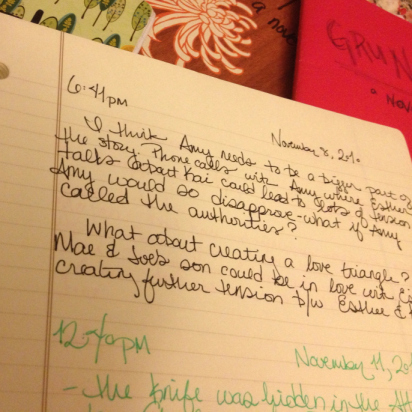 a nove
GRUN
a NO
6:41pm
November 8, 201
I think Amy needs to be a bigger part of
the story. Phone calls with Amy where Esther
talks about Kai could lead to lots of tension
Amy would so disapprove - what if Amy
called the authorities?
What about creating a love triangle?
Mae & Joe's son could be in love with E
creating further tension b/w Esther &
November 11, 20
- The knife was hidden in the Att